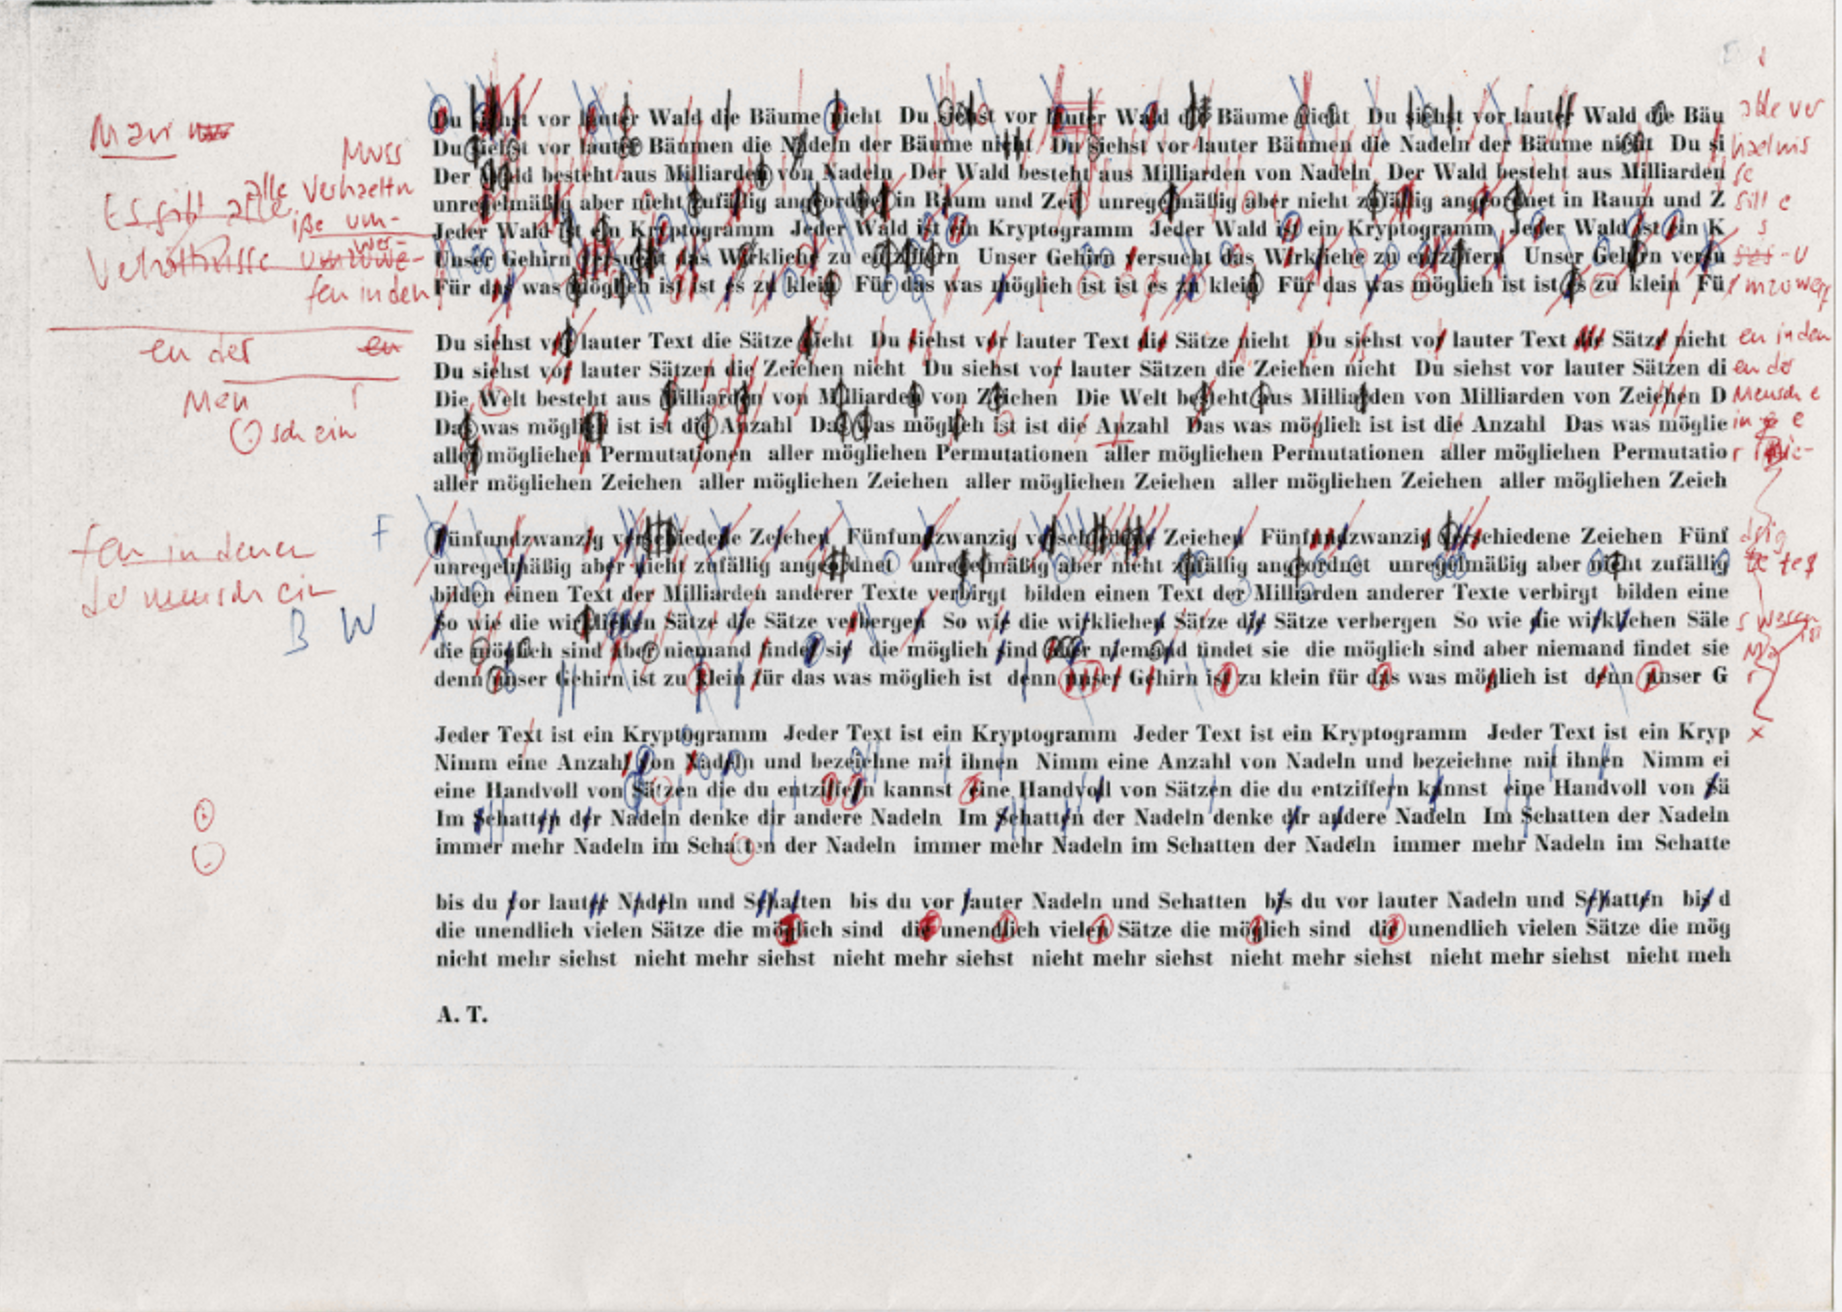 Man
Muss
alle Verhaeltn
Es gibt alle
iße um-
Verhältnisse umzuwe-
wer-
fen in den
en der en
Men
schein
fen in denen
der mensch ein
F
B W
Du siehst vor lauter Wald die Bäume nicht Du siehst vor lauter Wald die Bäume nicht Du siehst vor lauter Wald die Bäu alle ver
Du siehst vor lauter Bäumen die Nadeln der Bäume nicht Du siehst vor lauter Bäumen die Nadeln der Bäume nicht Du si haelnis
Der Wald besteht aus Milliarden von Nadeln Der Wald besteht aus Milliarden von Nadeln Der Wald besteht aus Milliarden se
unregelmäßig aber nicht zufällig angeordnet in Raum und Zeit unregelmäßig aber nicht zufällig angeordnet in Raum und Z
Jeder Wald ist ein Kryptogramm Jeder Wald ist ein Kryptogramm Jeder Wald ist ein Kryptogramm Jeder Wald ist ein K s
Unser Gehirn versucht das Wirkliche zu entziffern Unser Gehirn versucht das Wirkliche zu entziffern Unser Gehirn versu
Für das was möglich ist ist es zu klein Für das was möglich ist ist es zu klein Für das was möglich ist ist es zu klein Fü mzuwerf
Du siehst vor lauter Text die Sätze nicht Du siehst vor lauter Text die Sätze nicht Du siehst vor lauter Text die Sätze nicht en in den
Du siehst vor lauter Sätzen die Zeichen nicht Du siehst vor lauter Sätzen die Zeichen nicht Du siehst vor lauter Sätzen di en der
Die Welt besteht aus Milliarden von Milliarden von Zeichen Die Welt besteht aus Milliarden von Milliarden von Zeichen D Mensch e
Das was möglich ist ist die Anzahl Das was möglich ist ist die Anzahl Das was möglich ist ist die Anzahl Das was möglic
aller möglichen Permutationen aller möglichen Permutationen aller möglichen Permutationen aller möglichen Permutatio
aller möglichen Zeichen aller möglichen Zeichen aller möglichen Zeichen aller möglichen Zeichen aller möglichen Zeich
Fünfundzwanzig verschiedene Zeichen Fünfundzwanzig verschiedene Zeichen Fünfundzwanzig verschiedene Zeichen Fünf
unregelmäßig aber nicht zufällig angeordnet unregelmäßig aber nicht zufällig angeordnet unregelmäßig aber nicht zufällig
bilden einen Text der Milliarden anderer Texte verbirgt bilden einen Text der Milliarden anderer Texte verbirgt bilden eine
So wie die wirklichen Sätze die Sätze verbergen So wie die wirklichen Sätze die Sätze verbergen So wie die wirklichen Säle
die möglich sind aber niemand findet sie die möglich sind aber niemand findet sie die möglich sind aber niemand findet sie
denn unser Gehirn ist zu klein für das was möglich ist denn unser Gehirn ist zu klein für das was möglich ist denn unser G
Jeder Text ist ein Kryptogramm Jeder Text ist ein Kryptogramm Jeder Text ist ein Kryptogramm Jeder Text ist ein Kryp x
Nimm eine Anzahl von Nadeln und bezeichne mit ihnen Nimm eine Anzahl von Nadeln und bezeichne mit ihnen Nimm ei
eine Handvoll von Sätzen die du entziffern kannst eine Handvoll von Sätzen die du entziffern kannst eine Handvoll von Sä
Im Schatten der Nadeln denke dir andere Nadeln Im Schatten der Nadeln denke dir andere Nadeln Im Schatten der Nadeln
immer mehr Nadeln im Schatten der Nadeln immer mehr Nadeln im Schatten der Nadeln immer mehr Nadeln im Schatte
bis du vor lauter Nadeln und Schatten bis du vor lauter Nadeln und Schatten bis du vor lauter Nadeln und Schatten bis d
die unendlich vielen Sätze die möglich sind die unendlich vielen Sätze die möglich sind die unendlich vielen Sätze die mög
nicht mehr siehst nicht mehr siehst nicht mehr siehst nicht mehr siehst nicht mehr siehst nicht mehr siehst nicht meh
A. T.